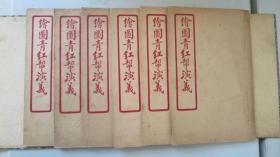 繪圖青紅幫演義
繪圖青紅幫演義
繪圖青紅幫演義
繪圖青紅幫演義
繪圖青紅幫演義
繪圖青紅幫演義